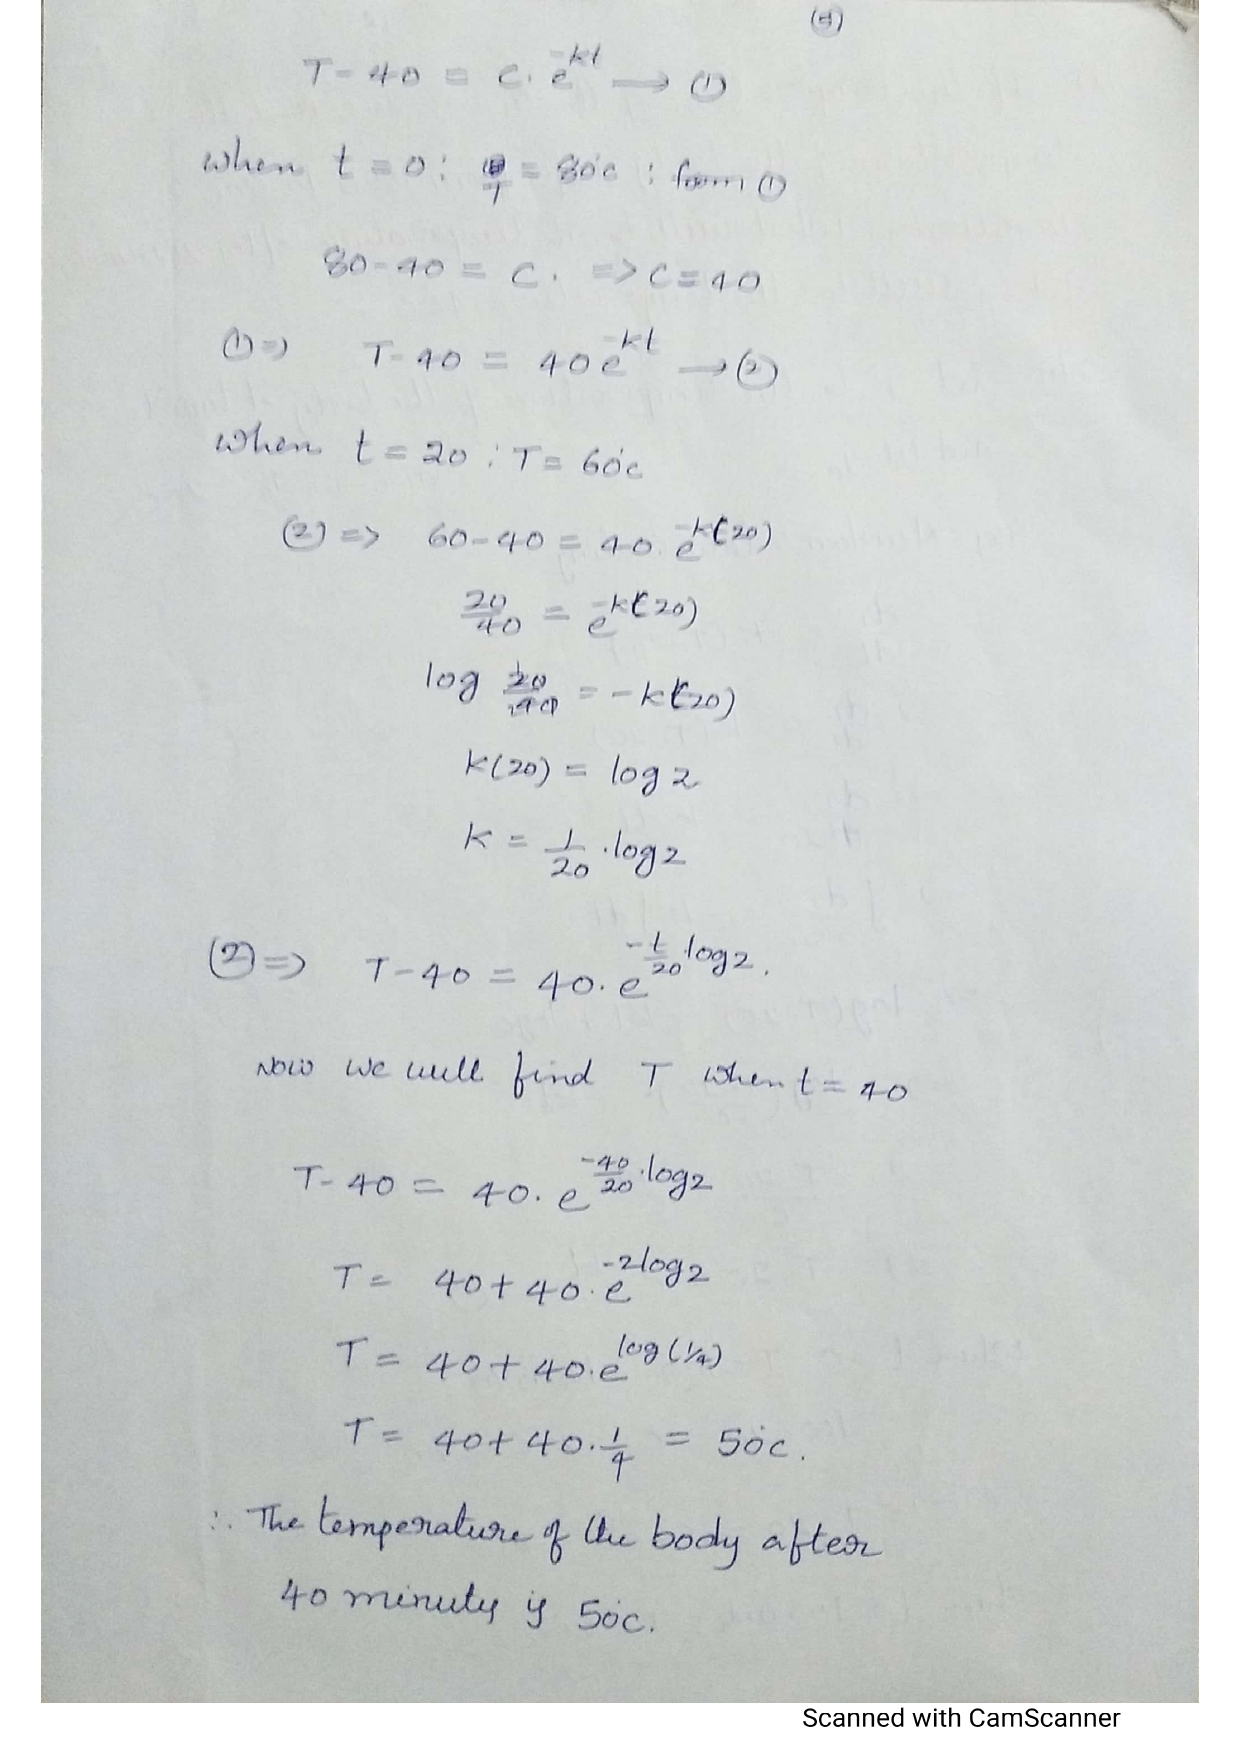 (5)
T - 40 = c. e^{-kt} → ①
when t = 0 : T = 80°c : form ①
80 - 40 = c. => c = 40
① => T - 40 = 40 e^{-kt} → ②
when t = 20 : T = 60°c
② => 60 - 40 = 40. e^{-k(20)}
20/40 = e^{-k(20)}
log 20/40 = -k(20)
k(20) = log 2
k = 1/20 . log 2
② => T - 40 = 40. e^{-t/20 . log 2}.
Now we will find T when t = 40
T - 40 = 40. e^{-40/20 . log 2}
T = 40 + 40. e^{-2 log 2}
T = 40 + 40. e^{log (1/4)}
T = 40 + 40. 1/4 = 50°c.
∴ The temperature of the body after
40 minuty is 50°c.
Scanned with CamScanner